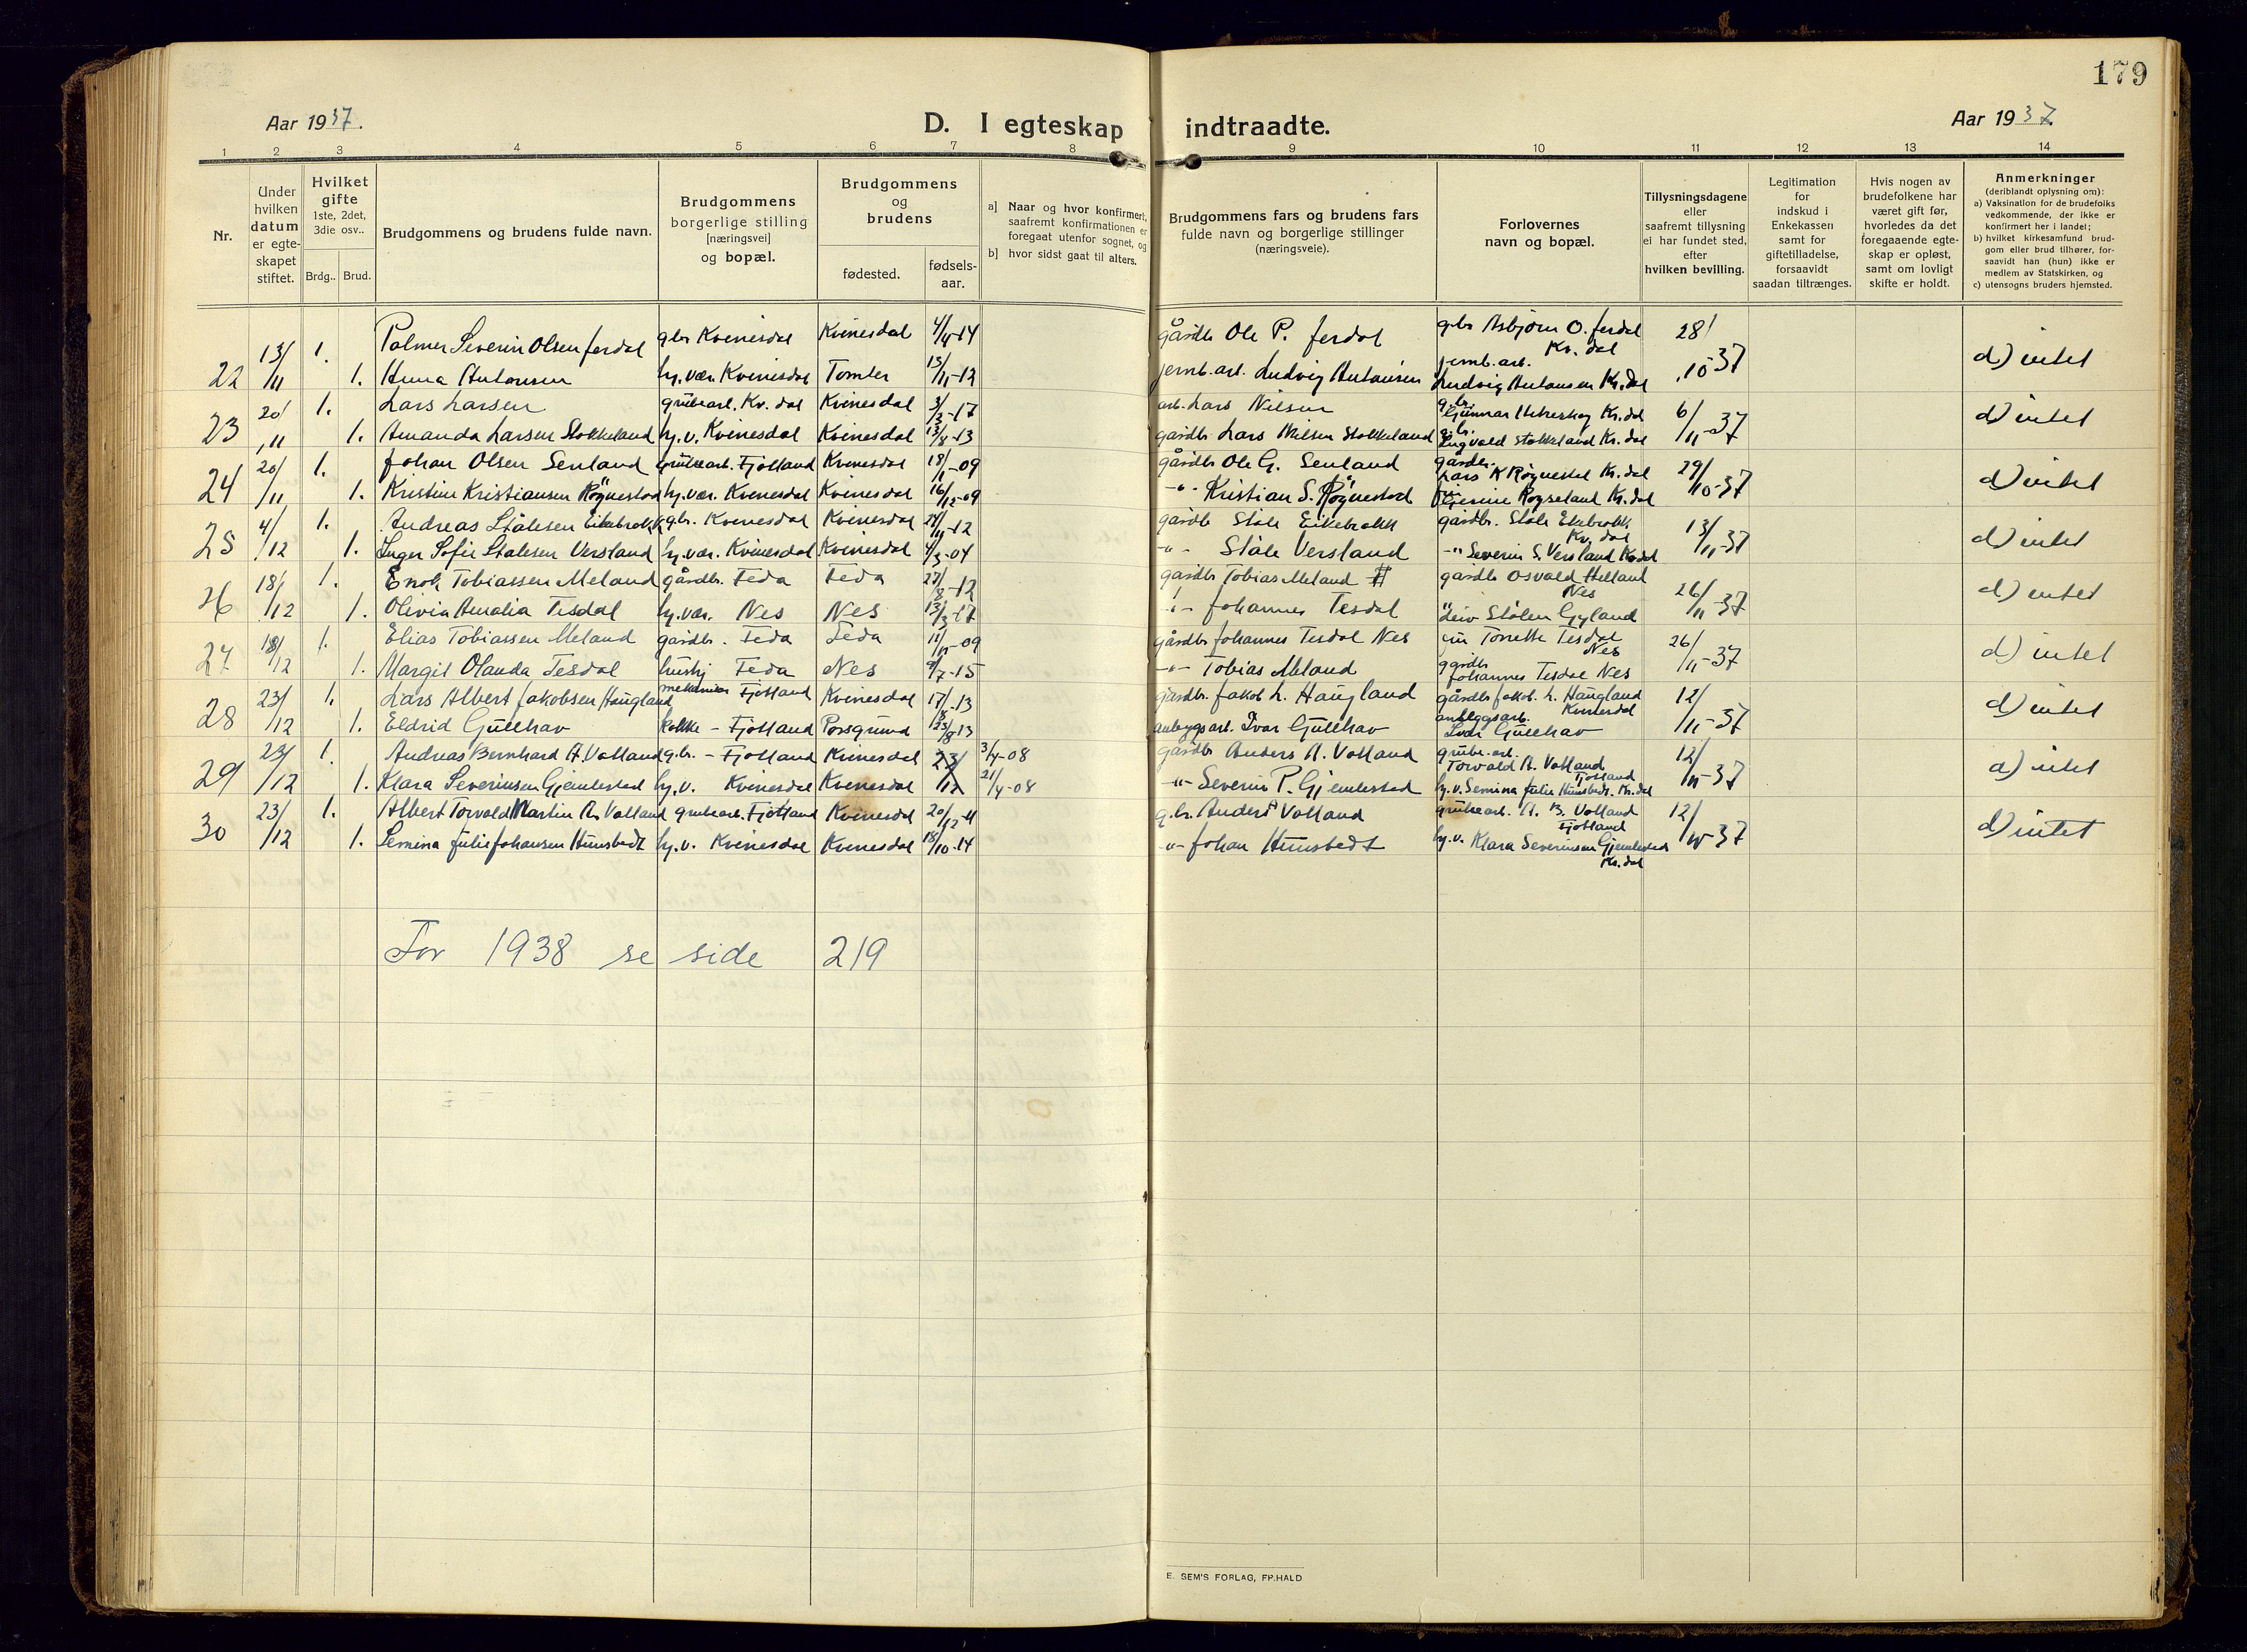 179
Aar 1937.
D. I egteskap indtraadte.
Aar 1937.
1 2 3 4 5 6 7 8 9 10 11 12 13 14
Nr.
Under hvilken datum er egte-skapet stiftet.
Hvilket gifte 1ste, 2det, 3die osv..
Brdg.. Brud.
Brudgommens og brudens fulde navn.
Brudgommens borgerlige stilling [næringsvei] og bopæl.
Brudgommens og brudens
fødested.
fødsels-aar.
a] Naar og hvor konfirmert, saafremt konfirmationen er foregaat utenfor sognet, og
b] hvor sidst gaat til alters.
Brudgommens fars og brudens fars fulde navn og borgerlige stillinger (næringsveie).
Forlovernes navn og bopæl.
Tillysningsdagene eller saafremt tillysning ei har fundet sted, efter hvilken bevilling.
Legitimation for indskud i Enkekassen samt for giftetilladelse, forsaavidt saadan tiltrænges.
Hvis nogen av brudefolkene har været gift før, hvorledes da det foregaaende egte-skap er opløst, samt om lovligt skifte er holdt.
Anmerkninger
(deriblandt oplysning om):
a) Vaksination for de brudefolks vedkommende, der ikke er konfirmert her i landet;
b) hvilket kirkesamfund brud-gom eller brud tilhører, for-saavidt han (hun) ikke er medlem av Statskirken, og
c) utensogns bruders hjemsted.
22 13/11 1. Palmer Severin Olsen Jerdal gbr Kvinesdal Kvinesdal 4/4-14 gårdb Ole P. Jerdal gbr Asbjørn O. Jerdal Kv. dal 28/10-37 d) intet
1. Antonsen hj.vær. Kvinesdal Tomter 15/11-12 jernb.arb. Ludvig Antonsen jernb.arb. Ludvig Antonsen Kv.dal
23 20/11 1. Lars Larsen grubearb. Kv. dal Kvinesdal 3/2-17 arb. Lars Nilsen gbr. Gunnar Kv.dal 6/11-37 d) intet
1. Amanda Larsen Stokkeland hj.v. Kvinesdal Kvinesdal 13/8-13 gårdbr Lars Nilsen Stokkeland g.br. Ingvald Stokkeland Kv.dal
24 20/11 1. Johan Olsen Senland grubearb. Fjotland Kvinesdal 18/1-09 gårdbr Ole G. Senland gårdbr. Lars K Røgnestad Kv.dal 29/10-37 d) intet
1. Kristine Kristiansen Røgnestad hj.vær. Kvinesdal Kvinesdal 16/12-09 -"- Kristian S. Røgnestad Røyseland Kv.dal
25 4/12 1. Andreas Stålesen Eikebrokk g.br. Kvinesdal Kvinesdal 24/11-12 gårdb Ståle Eikebrokk gårdbr. Ståle Eikebrokk Kv. dal 13/11-37 d) intet
1. Inger Sofie Stalesen Versland hj.vær. Kvinesdal Kvinesdal 4/3-04 -"- Ståle Versland -"- Severin S. Versland Kv.dal
26 18/12 1. Enok Tobiassen Meland gårdbr. Feda Feda 27/8-12 gårdb Tobias Meland gårdb Osvald Helland Nes 26/11-37 d) intet
1. Olivia Amalia Tesdal hj.vær. Nes Nes 13/3-17 -"- Johannes Tesdal " Leiv Stølen Gyland
27 18/12 1. Elias Tobiassen Meland gårdbr. Feda Feda 11/11-09 gårdbr Johannes Tesdal Nes Tesdal Nes 26/11-37 d) intet
1. Margit Olanda Tesdal hushj Feda Nes 9/7-15 -"- Tobias Meland gårdb Johannes Tesdal Nes
28 23/12 1. Lars Albert Jakobsen Haugland mekaniker Fjotland Kvinesdal gårdbr. Jakob L. Haugland gårdb Jakob L. Haugland Kvinesdal 12/11-37 d) intet
1. Eldrid Gullhav kokke - Fjotland Porsgrund 23/8-13 anleggsarb. Ivar Gullhav anleggsarb. Ivar Gullhav
29 23/12 1. Andreas Bernhard A. Valland g.br. - Fjotland Kvinesdal 3/4-08 gårdb Anders A. Valland grube.arb. Torvald A. Valland Fjotland 12/11-37 d) intet
1. Klara Severinsen Gjemlestad hj.v. Kvinesdal Kvinesdal 21/4-08 -"- Severin P. Gjemlestad hj.v. Semina Julie Hunsbedt. Kv.dal
30 23/12 1. Albert Torvald Martin A. Valland grubearb. Fjotland Kvinesdal 20/12-11 g.br. Anders Valland grubearb. A. B. Valland Fjotland 12/11-37 d) intet
1. Semina Julie Johansen Hunsbedt hj.v. Kvinesdal Kvinesdal 18/10-14 -"- Johan Hunsbedt hj.v. Klara Severinsen Gjemlestad Kv.dal
For 1938 se side 219
E. SEM'S FORLAG, FR.HALD